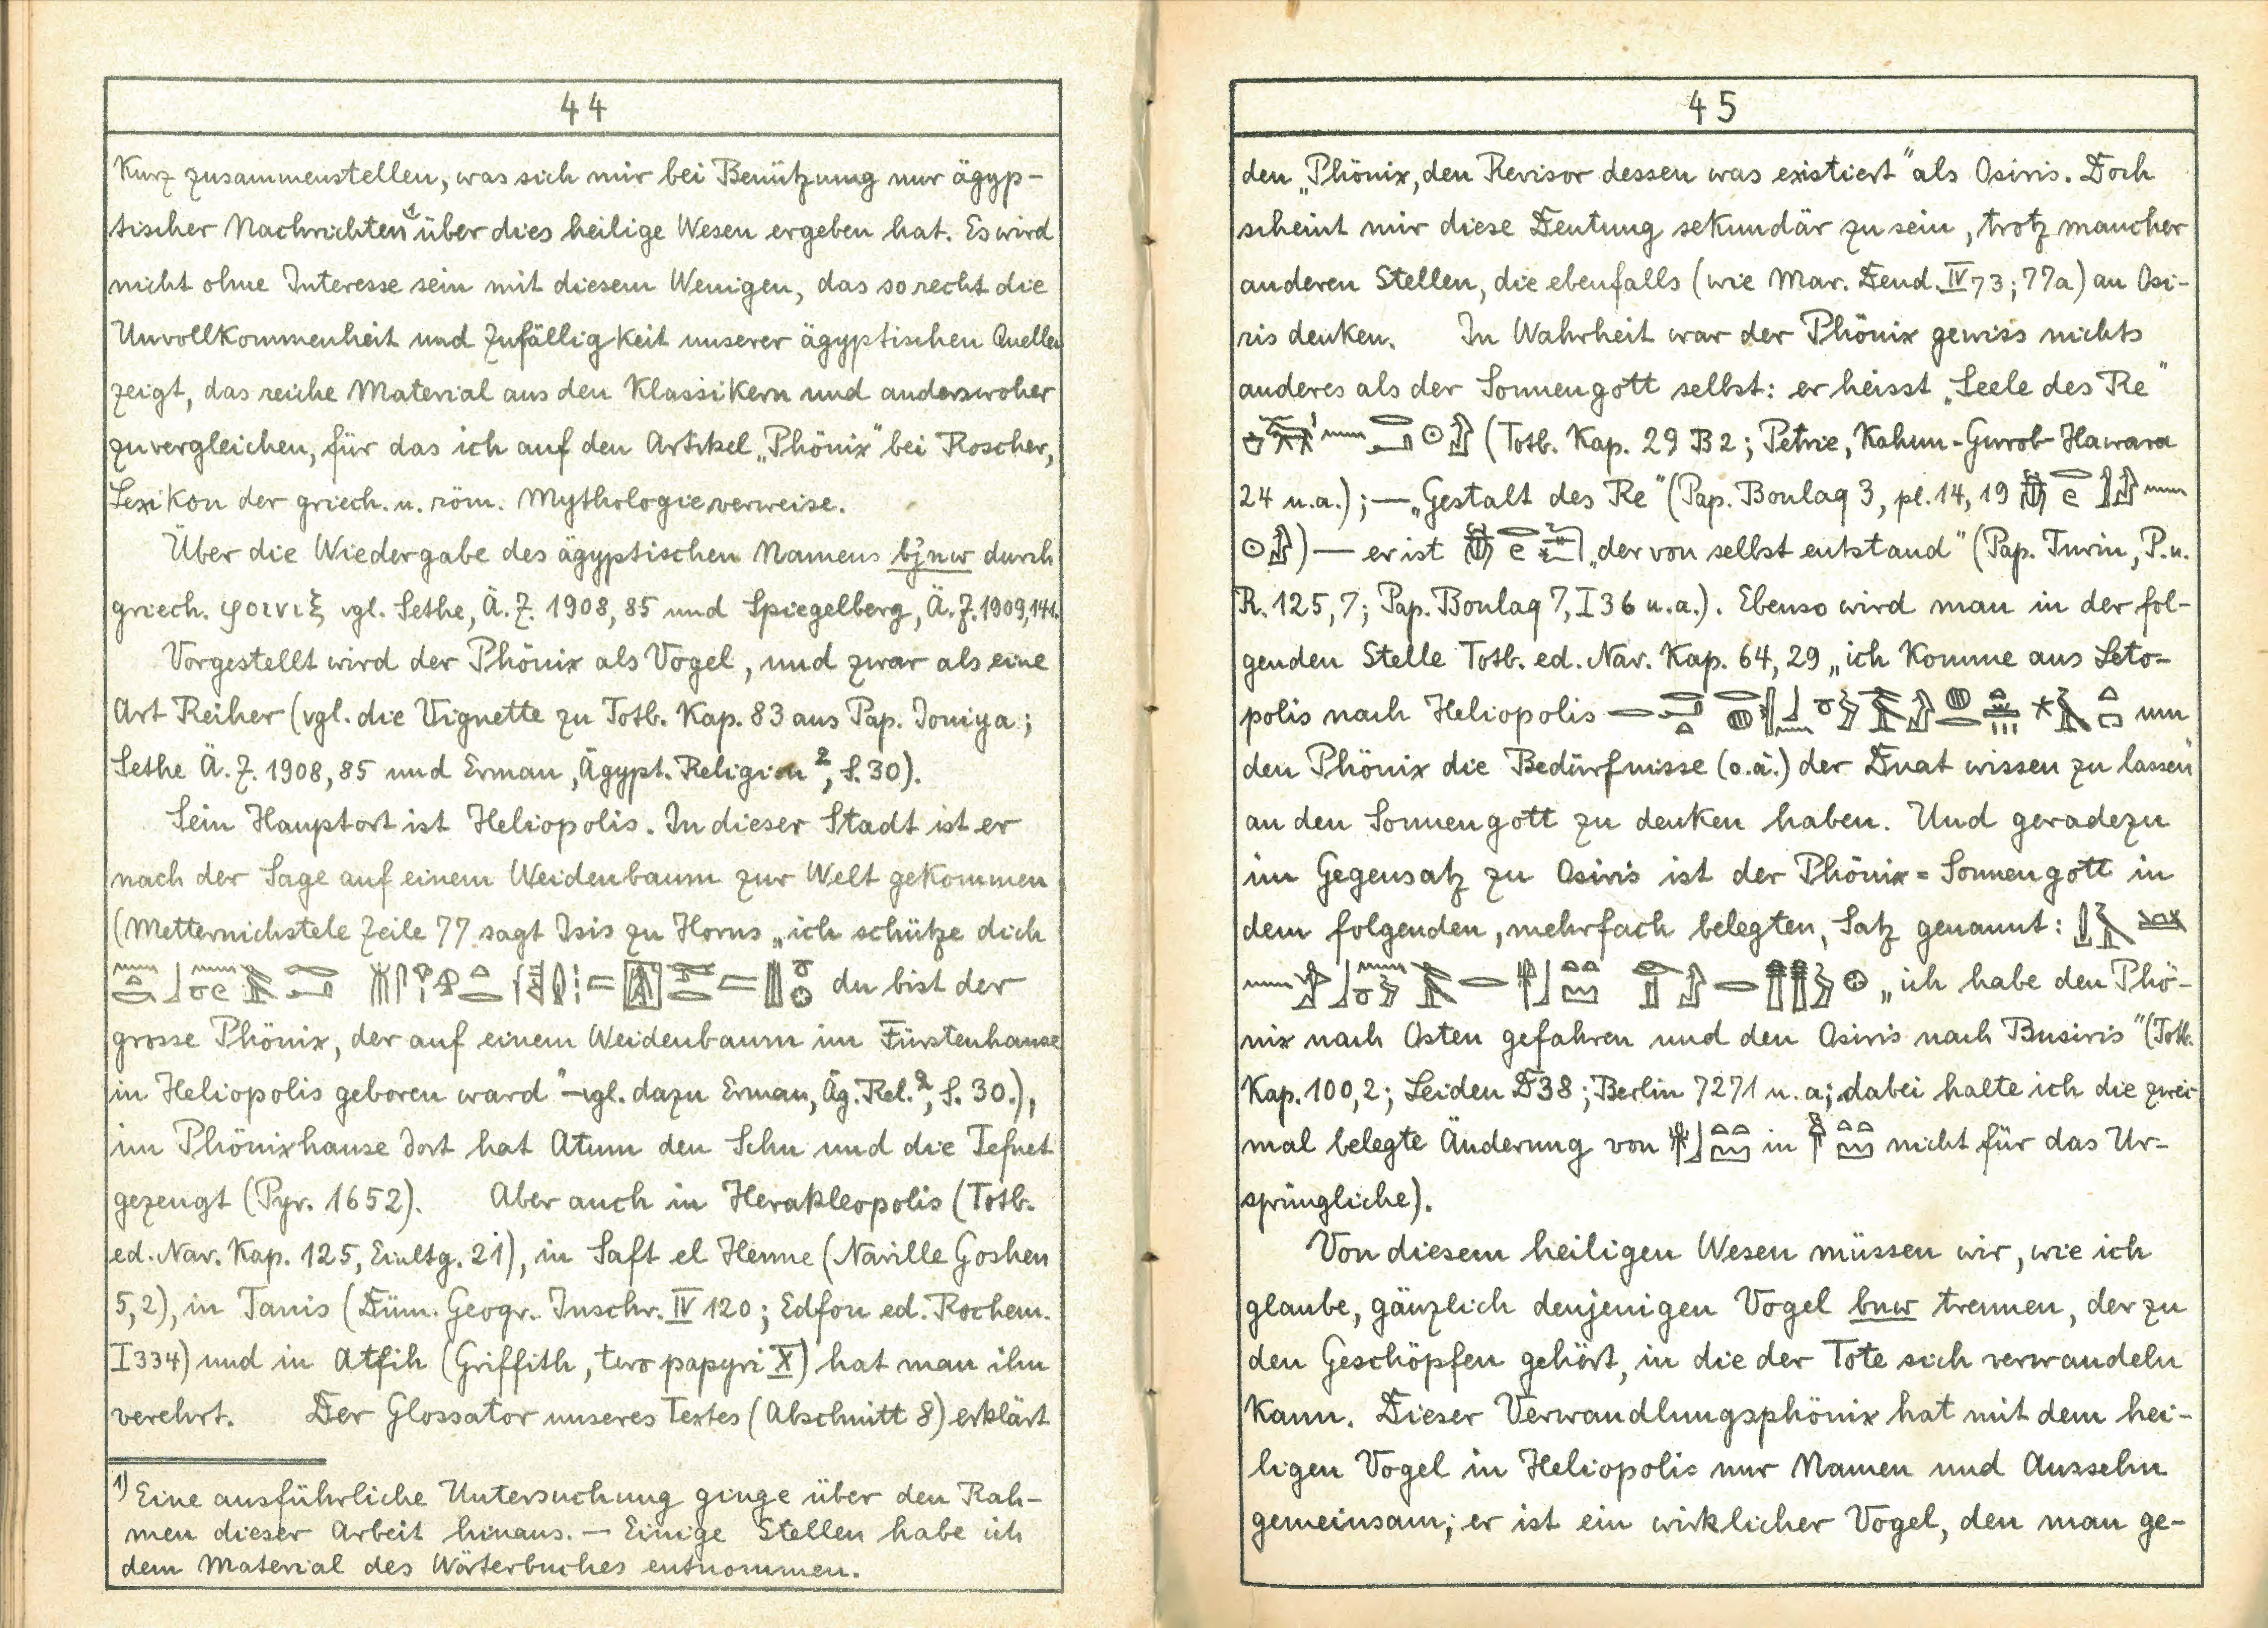 44
kurz zusammenstellen, was sich mir bei Benützung nur ägyp-
tischer Nachrichten¹ über dies heilige Wesen ergeben hat. Es wird
nicht ohne Interesse sein mit diesem Wenigen, das so recht die
Unvollkommenheit und Zufälligkeit unserer ägyptischen Quellen
zeigt, das reiche Material aus den Klassikern und anderswoher
zu vergleichen, für das ich auf den Artikel „Phönix“ bei Roscher,
Lexikon der griech. u. röm. Mythologie verweise.
Über die Wiedergabe des ägyptischen Namens bjnw durch
griech. φοινιξ vgl. Sethe, Ä. Z. 1908, 85 und Spiegelberg, Ä. Z. 1909, 141.
Vorgestellt wird der Phönix als Vogel, und zwar als eine
Art Reiher (vgl. die Vignette zu Totb. Kap. 83 aus Pap. Jouiya;
Sethe Ä. Z. 1908, 85 und Erman, Ägypt. Religion², S. 30).
Sein Hauptort ist Heliopolis. In dieser Stadt ist er
nach der Sage auf einem Weidenbaum zur Welt gekommen
(Metternichstele Zeile 77 sagt Isis zu Horus „ich schütze dich
du bist der
grosse Phönix, der auf einem Weidenbaum im Fürstenhause
in Heliopolis geboren ward“ – vgl. dazu Erman, Äg. Rel.², S. 30.),
im Phönixhause dort hat Atum den Schu und die Tefnet
gezeugt (Pyr. 1652). Aber auch in Herakleopolis (Totb.
ed. Nav. Kap. 125, Einltg. 21), in Saft el Henne (Naville Goshen
5,2), in Tanis (Düm. Geogr. Inschr. IV 120; Edfou ed. Rochem.
I 334) und in Atfih (Griffith, two papyri X) hat man ihn
verehrt. Der Glossator unseres Textes (Abschnitt 8) erklärt
1) Eine ausführliche Untersuchung ginge über den Rah-
men dieser Arbeit hinaus. — Einige Stellen habe ich
dem Material des Wörterbuches entnommen.
45
den „Phönix, den Revisor dessen was existiert“ als Osiris. Doch
scheint mir diese Deutung sekundär zu sein, trotz mancher
anderen Stellen, die ebenfalls (wie Mar. Dend. IV 73; 77a) an Osi-
ris denken. In Wahrheit war der Phönix gewiss nichts
anderes als der Sonnengott selbst: er heisst „Seele des Re“
(Totb. Kap. 29 B 2; Petrie, Kahun-Gurob-Hawara
24 u.a.); — „Gestalt des Re“ (Pap. Boulaq 3, pl. 14, 19
) — er ist „der von selbst entstand“ (Pap. Turin, P. u.
R. 125, 7; Pap. Boulaq 7, I 36 u.a.). Ebenso wird man in der fol-
genden Stelle Totb. ed. Nav. Kap. 64, 29 „ich komme aus Leto-
polis nach Heliopolis um
den Phönix die Bedürfnisse (o.ä.) der Duat wissen zu lassen“
an den Sonnengott zu denken haben. Und geradezu
im Gegensatz zu Osiris ist der Phönix = Sonnengott in
dem folgenden, mehrfach belegten, Satz genannt:
„ich habe den Phö-
nix nach Osten gefahren und den Osiris nach Busiris“ (Totb.
Kap. 100, 2; Leiden D 38; Berlin 7271 u. a; dabei halte ich die zwei-
mal belegte Änderung von in nicht für das Ur-
sprüngliche).
Von diesem heiligen Wesen müssen wir, wie ich
glaube, gänzlich denjenigen Vogel bnw trennen, der zu
den Geschöpfen gehört, in die der Tote sich verwandeln
kann. Dieser Verwandlungsphönix hat mit dem hei-
ligen Vogel in Heliopolis nur Namen und Aussehn
gemeinsam; er ist ein wirklicher Vogel, den man ge-